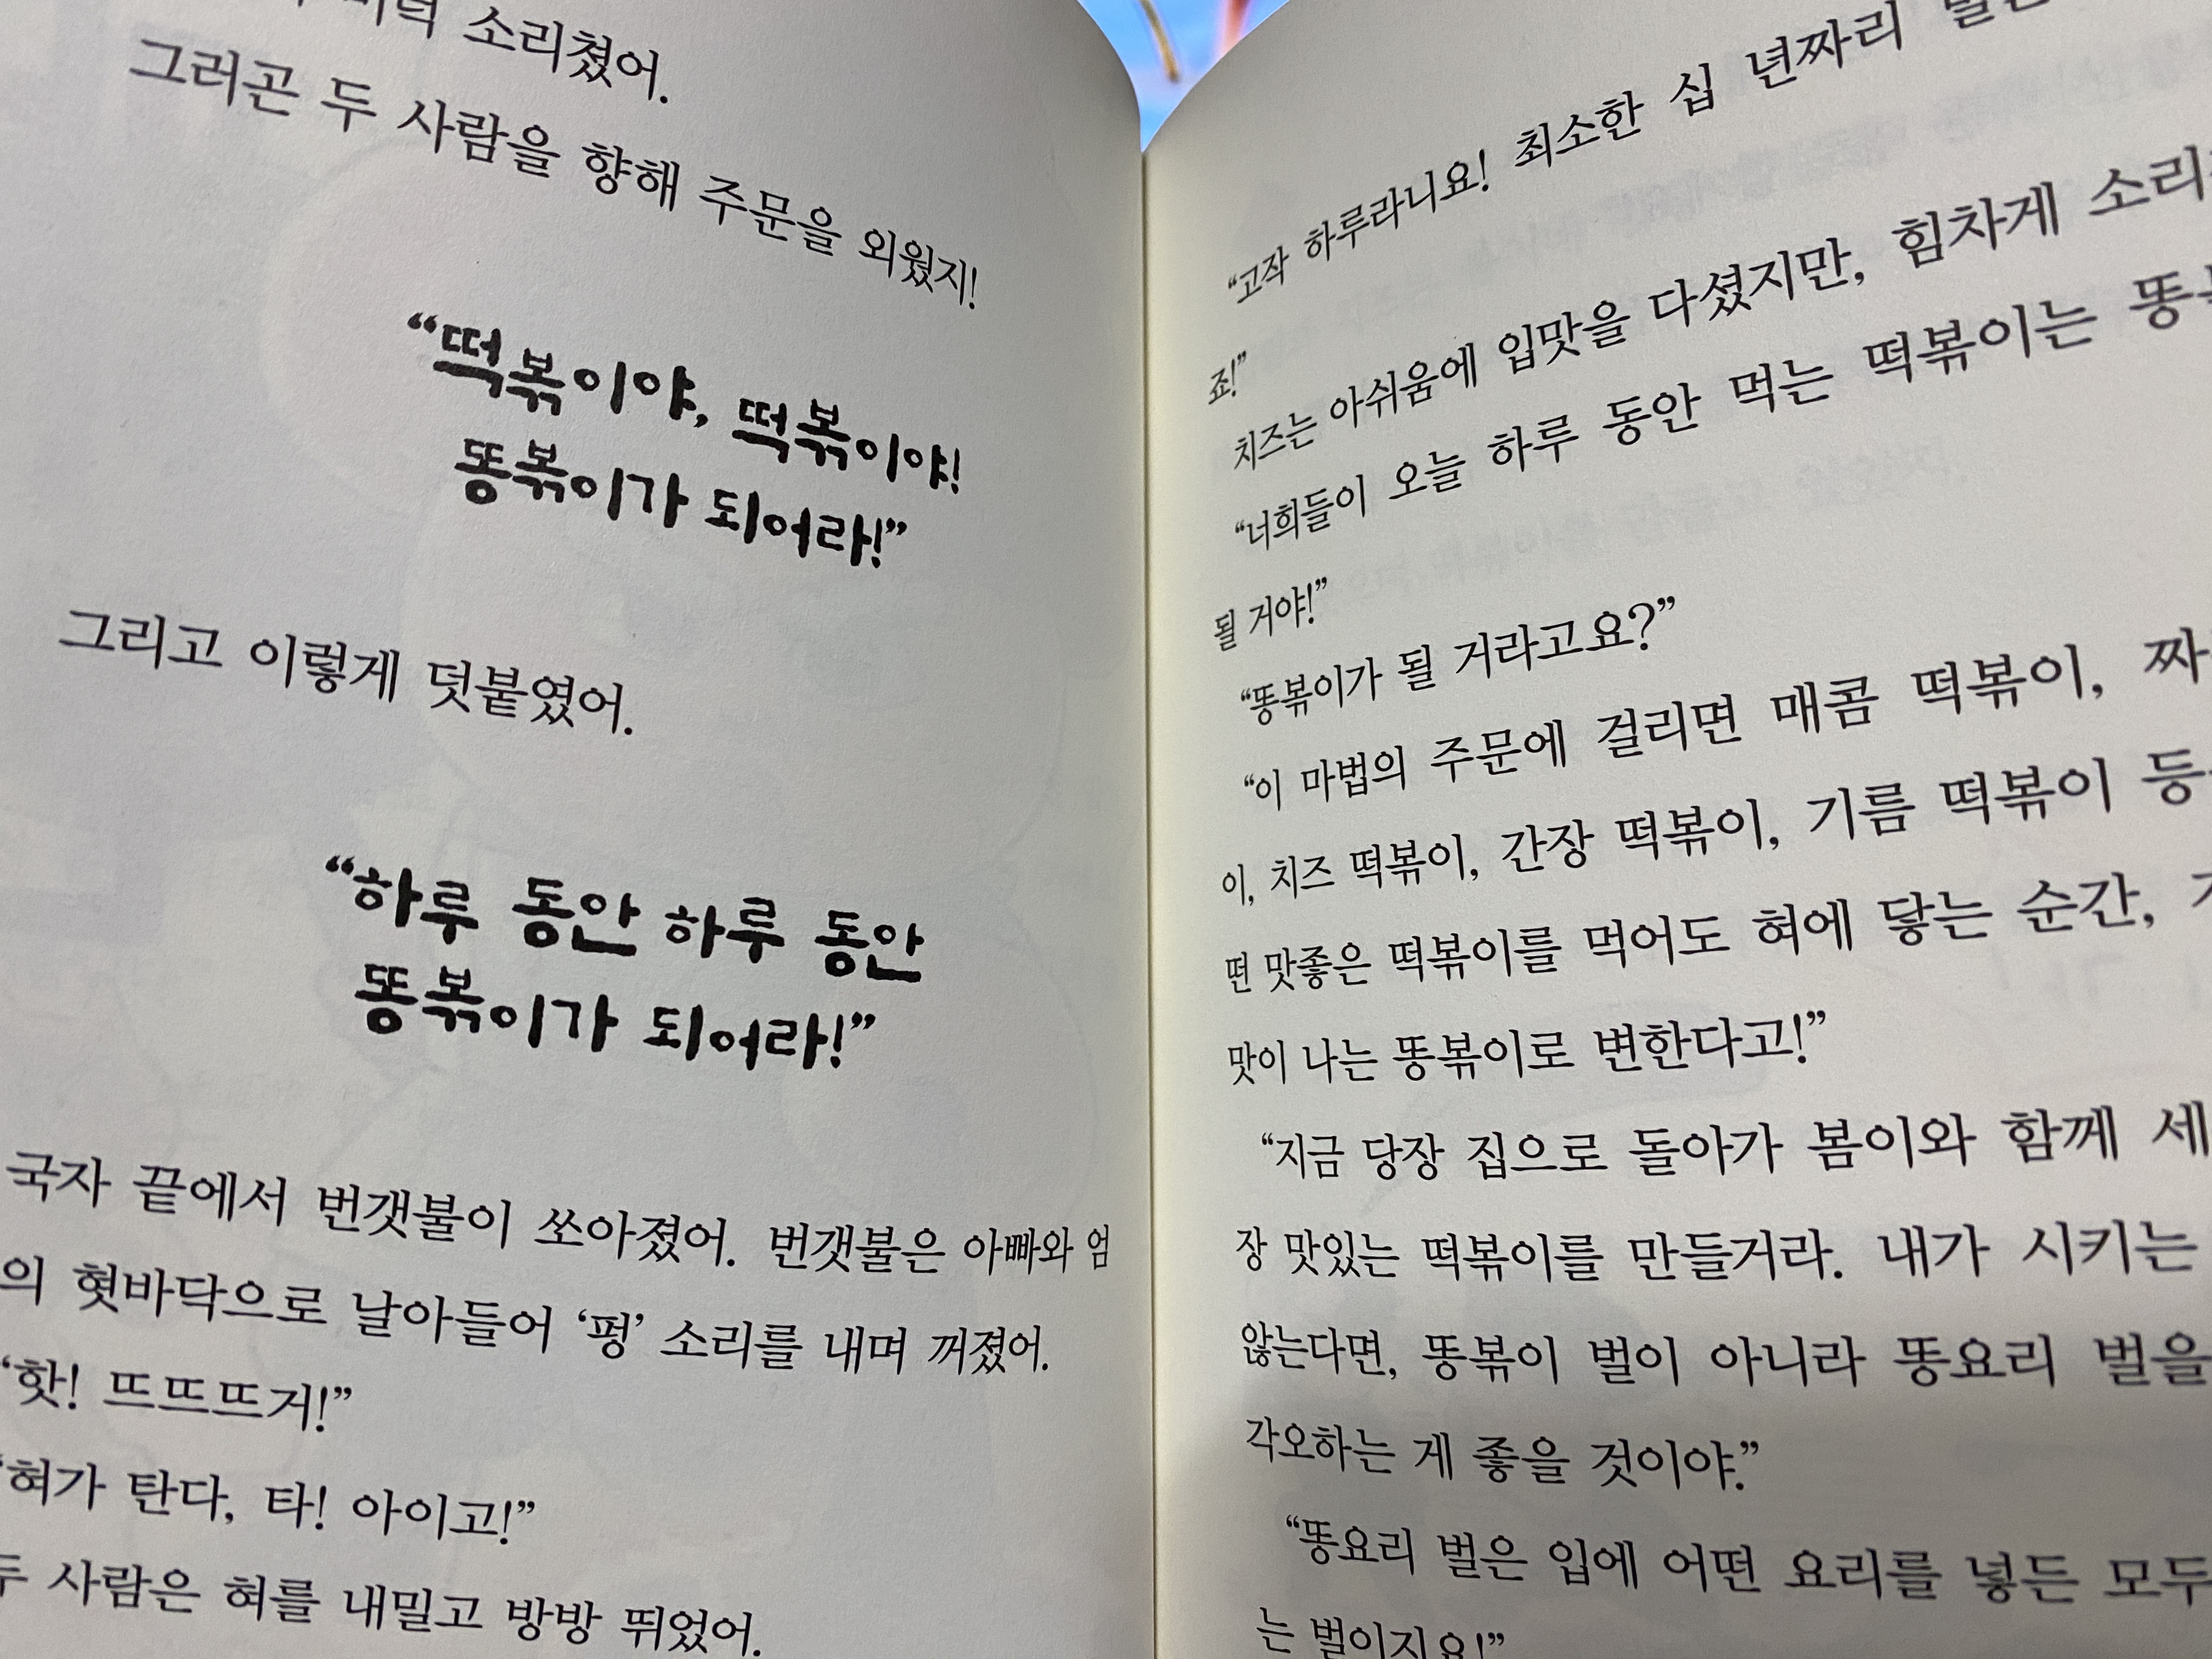 소리쳤어.
그러곤 두 사람을 향해 주문을 외웠지!
“떡볶이야, 떡볶이야!
똥볶이가 되어라!”
그리고 이렇게 덧붙였어.
“하루 동안 하루 동안
똥볶이가 되어라!”
국자 끝에서 번갯불이 쏘아졌어. 번갯불은 아빠와 엄
의 혓바닥으로 날아들어 ‘펑’ 소리를 내며 꺼졌어.
“핫! 뜨뜨뜨거!”
“혀가 탄다, 타! 아이고!”
두 사람은 혀를 내밀고 방방 뛰었어.
“고작 하루라니요! 최소한 십 년짜리
죠!”
치즈는 아쉬움에 입맛을 다셨지만, 힘차게
“너희들이 오늘 하루 동안 먹는 떡볶이는
될 거야!”
“똥볶이가 될 거라고요?”
“이 마법의 주문에 걸리면 매콤 떡볶이,
이, 치즈 떡볶이, 간장 떡볶이, 기름 떡볶이
떤 맛좋은 떡볶이를 먹어도 혀에 닿는 순간,
맛이 나는 똥볶이로 변한다고!”
“지금 당장 집으로 돌아가 봄이와 함께 세
장 맛있는 떡볶이를 만들거라. 내가 시키는
않는다면, 똥볶이 벌이 아니라 똥요리 벌을
각오하는 게 좋을 것이야.”
“똥요리 벌은 입에 어떤 요리를 넣든 모두
는 벌이지요!”